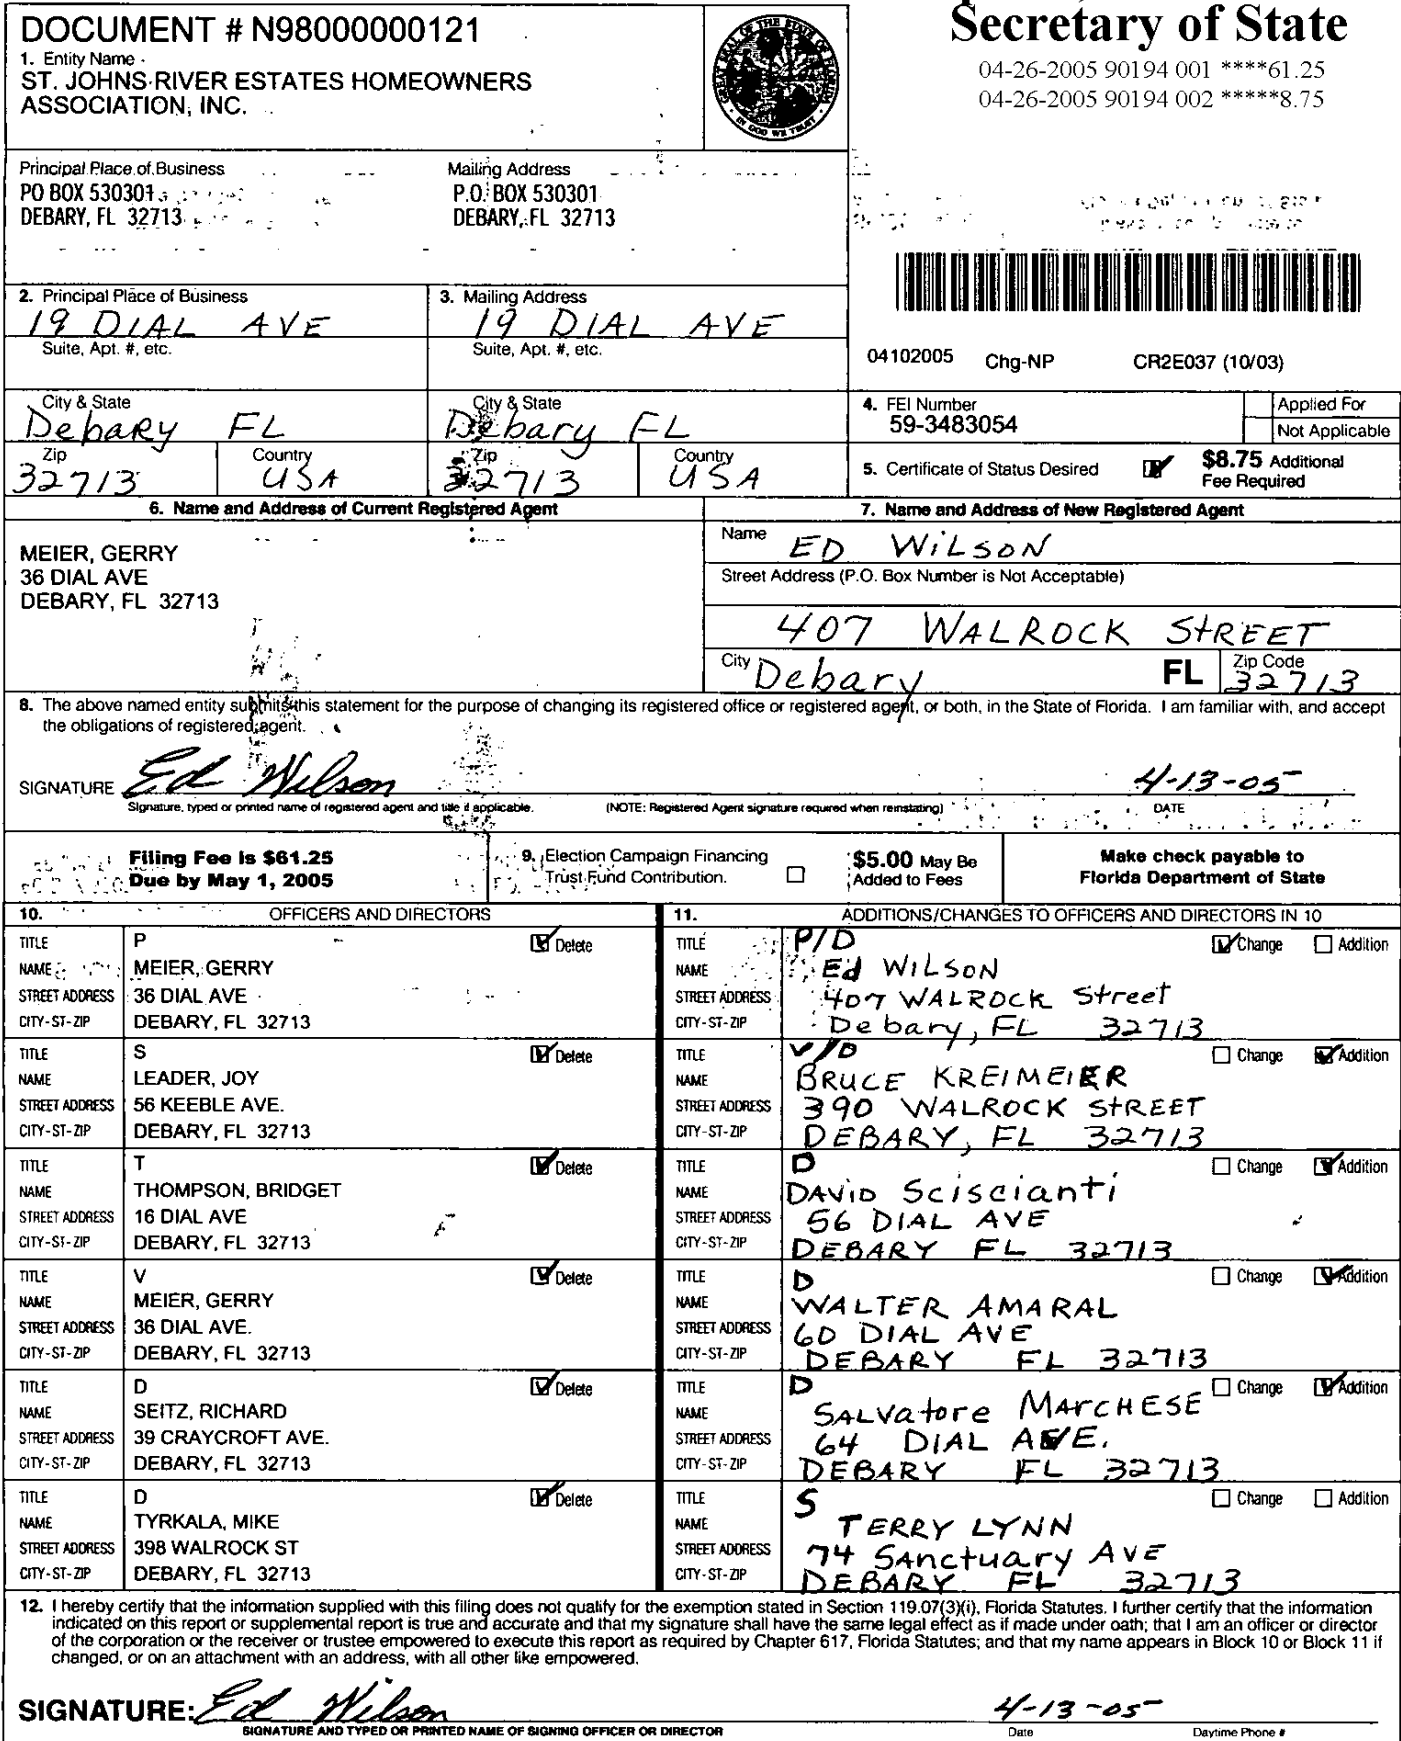 DOCUMENT # N98000000121
1. Entity Name
ST. JOHNS RIVER ESTATES HOMEOWNERS
ASSOCIATION, INC.
GREAT SEAL OF THE STATE OF FLORIDA
IN GOD WE TRUST
Secretary of State
04-26-2005 90194 001 ****61.25
04-26-2005 90194 002 *****8.75
Principal Place of Business
PO BOX 530301
DEBARY, FL 32713
Mailing Address
P.O. BOX 530301
DEBARY, FL 32713
2. Principal Place of Business
19 DIAL AVE
Suite, Apt. #, etc.
3. Mailing Address
19 DIAL AVE
Suite, Apt. #, etc.
04102005 Chg-NP CR2E037 (10/03)
City & State
Debary FL
City & State
Debary FL
Zip
32713
Country
USA
Zip
32713
Country
USA
4. FEI Number
59-3483054
Applied For
Not Applicable
5. Certificate of Status Desired
$8.75 Additional
Fee Required
6. Name and Address of Current Registered Agent
MEIER, GERRY
36 DIAL AVE
DEBARY, FL 32713
7. Name and Address of New Registered Agent
Name ED WILSON
Street Address (P.O. Box Number is Not Acceptable)
407 WALROCK StREET
City Debary FL Zip Code 32713
8. The above named entity submits this statement for the purpose of changing its registered office or registered agent, or both, in the State of Florida. I am familiar with, and accept
the obligations of registered agent.
SIGNATURE Ed Wilson 4-13-05
Signature, typed or printed name of registered agent and title if applicable. (NOTE: Registered Agent signature required when reinstating) DATE
Filing Fee is $61.25
Due by May 1, 2005
9. Election Campaign Financing
Trust Fund Contribution.
$5.00 May Be
Added to Fees
Make check payable to
Florida Department of State
10. OFFICERS AND DIRECTORS
TITLE P Delete
NAME MEIER, GERRY
STREET ADDRESS 36 DIAL AVE
CITY-ST-ZIP DEBARY, FL 32713
TITLE S Delete
NAME LEADER, JOY
STREET ADDRESS 56 KEEBLE AVE.
CITY-ST-ZIP DEBARY, FL 32713
TITLE T Delete
NAME THOMPSON, BRIDGET
STREET ADDRESS 16 DIAL AVE
CITY-ST-ZIP DEBARY, FL 32713
TITLE V Delete
NAME MEIER, GERRY
STREET ADDRESS 36 DIAL AVE.
CITY-ST-ZIP DEBARY, FL 32713
TITLE D Delete
NAME SEITZ, RICHARD
STREET ADDRESS 39 CRAYCROFT AVE.
CITY-ST-ZIP DEBARY, FL 32713
TITLE D Delete
NAME TYRKALA, MIKE
STREET ADDRESS 398 WALROCK ST
CITY-ST-ZIP DEBARY, FL 32713
11. ADDITIONS/CHANGES TO OFFICERS AND DIRECTORS IN 10
TITLE P/D Change Addition
NAME Ed WILSON
STREET ADDRESS 407 WALROCK Street
CITY-ST-ZIP Debary, FL 32713
TITLE V/D Change Addition
NAME BRUCE KREIMEIER
STREET ADDRESS 390 WALROCK StREET
CITY-ST-ZIP DEBARY, FL 32713
TITLE D Change Addition
NAME DAVID Sciscianti
STREET ADDRESS 56 DIAL AVE
CITY-ST-ZIP DEBARY FL 32713
TITLE D Change Addition
NAME WALTER AMARAL
STREET ADDRESS 60 DIAL AVE
CITY-ST-ZIP DEBARY FL 32713
TITLE D Change Addition
NAME SALVatore MArCHESE
STREET ADDRESS 64 DIAL AVE.
CITY-ST-ZIP DEBARY FL 32713
TITLE S Change Addition
NAME TERRY LYNN
STREET ADDRESS 74 SANctuary AVE
CITY-ST-ZIP DEBARY FL 32713
12. I hereby certify that the information supplied with this filing does not qualify for the exemption stated in Section 119.07(3)(i), Florida Statutes. I further certify that the information
indicated on this report or supplemental report is true and accurate and that my signature shall have the same legal effect as if made under oath; that I am an officer or director
of the corporation or the receiver or trustee empowered to execute this report as required by Chapter 617, Florida Statutes; and that my name appears in Block 10 or Block 11 if
changed, or on an attachment with an address, with all other like empowered.
SIGNATURE: Ed Wilson 4-13-05
SIGNATURE AND TYPED OR PRINTED NAME OF SIGNING OFFICER OR DIRECTOR Date Daytime Phone #